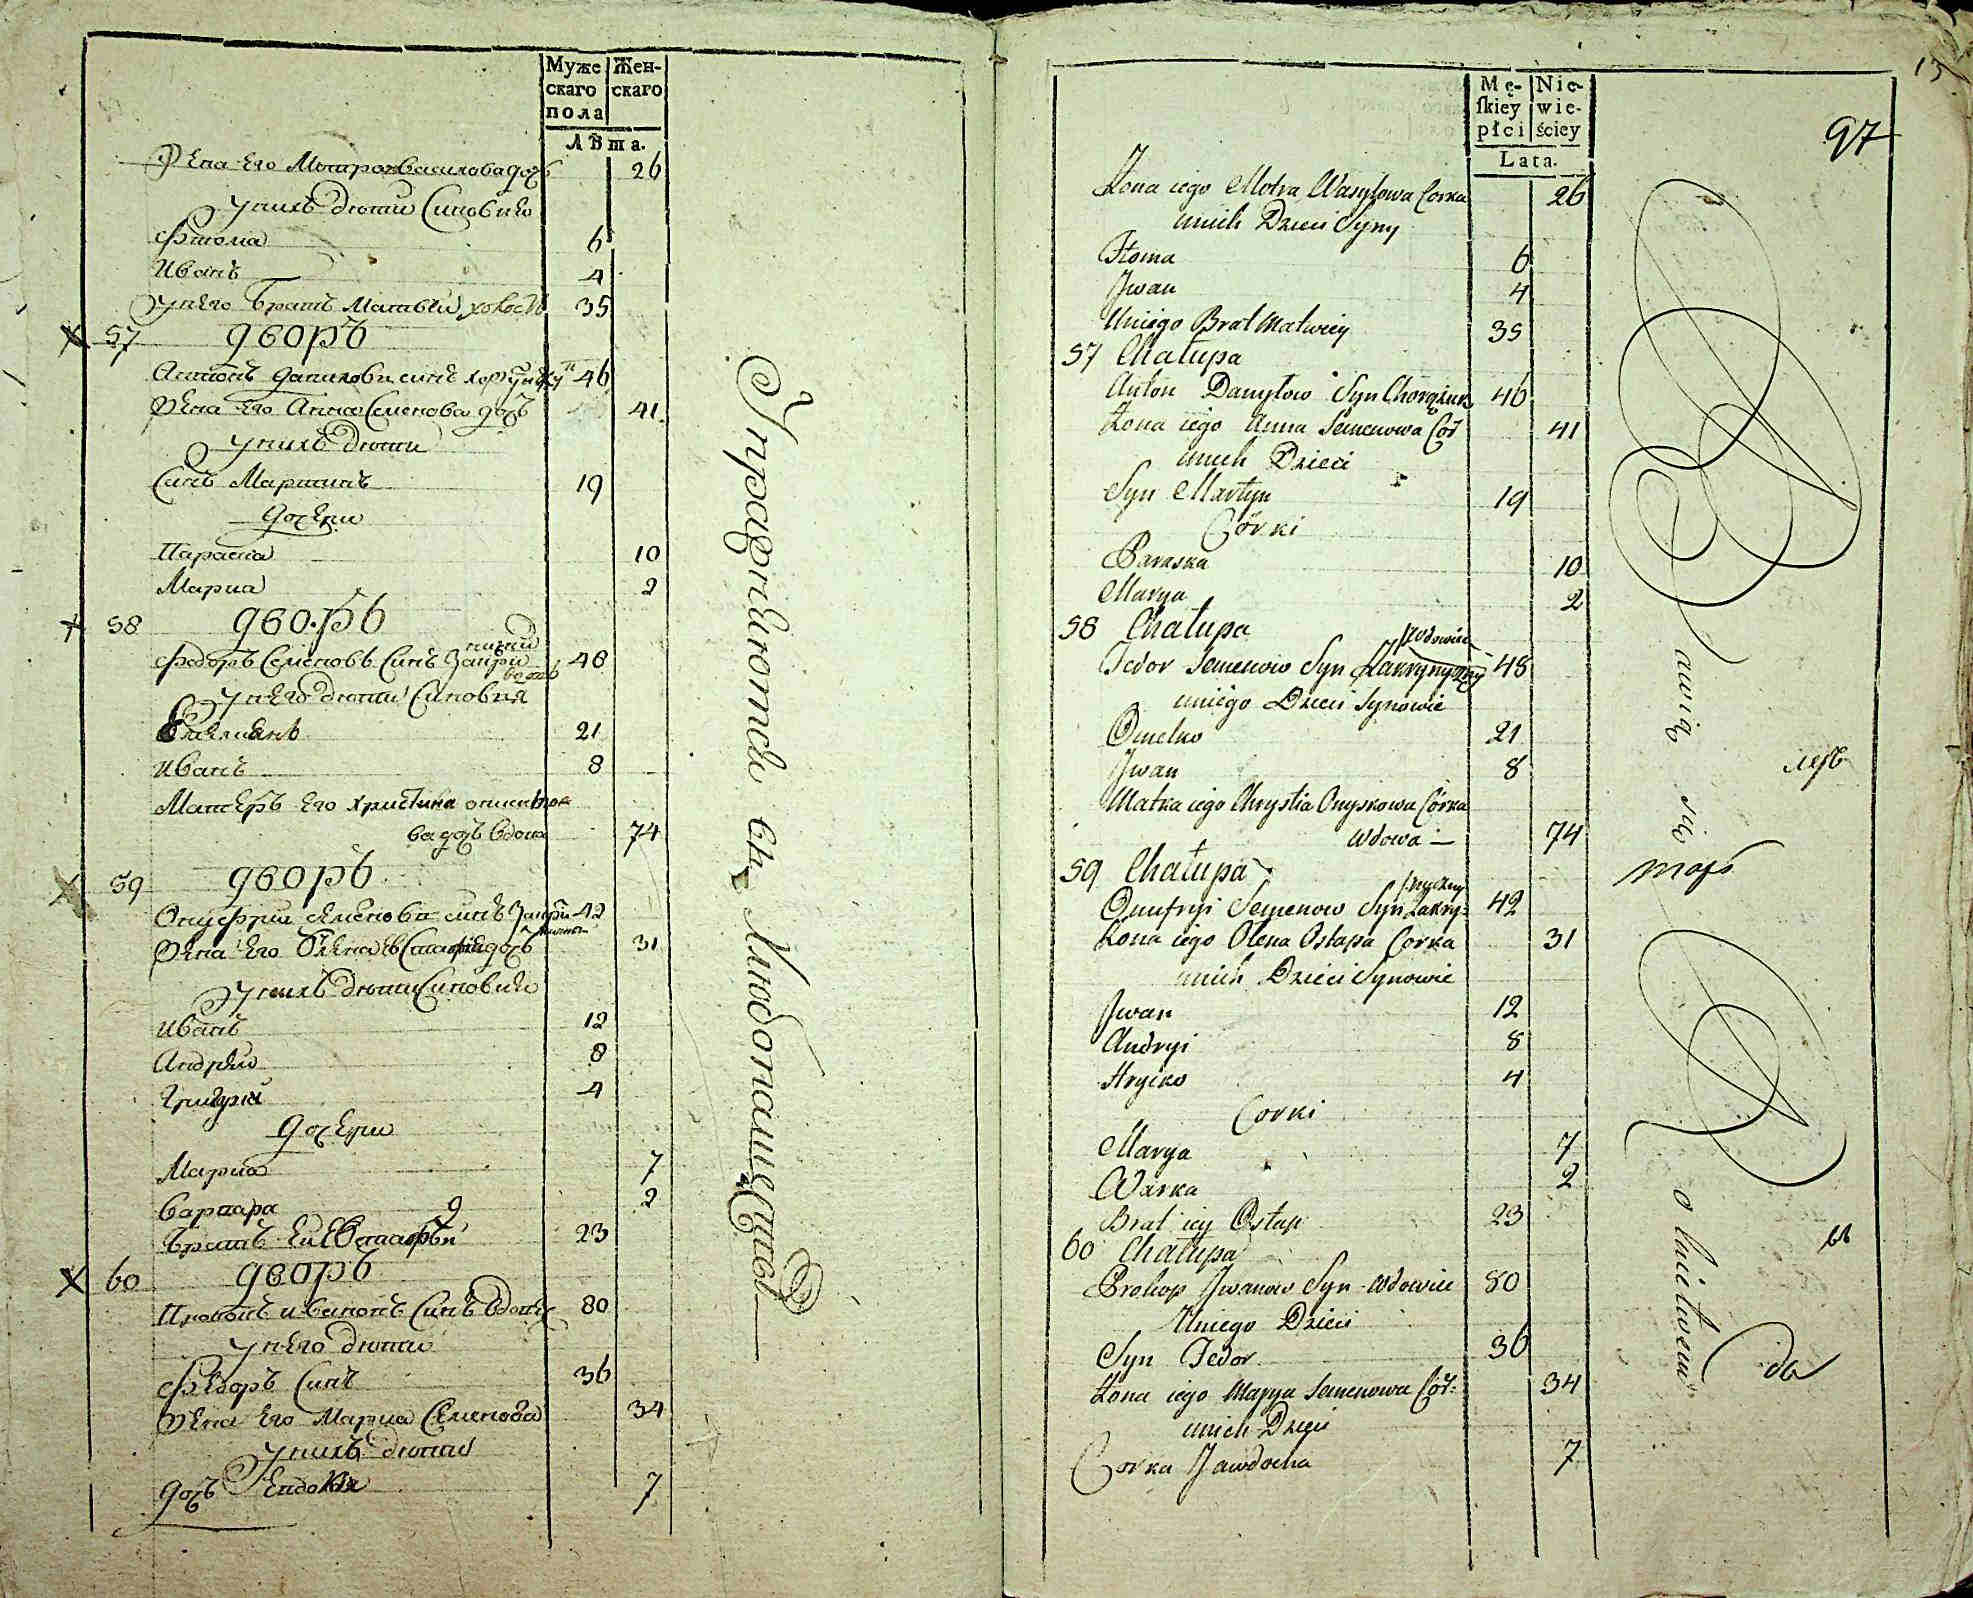 Муже Жен-
скаго скаго
пола
Лѣта.
Жена его Мотра Василова дочь 26
у нихъ дѣти Синовѣя
Фтома 6
Иванъ 4
у него братъ Матвѣй холостъ 35
57 дворъ
Антонъ Даниловъ синъ 46
Жена его Анна Семенова дочъ 41
у нихъ дѣти
Синъ Мартинъ 19
дочери
Параска 10
Мариа 2
58 дворъ
Федоръ Семеновъ Синъ 48
у него дѣти Синовия
Емелианъ 21
Иванъ 8
Матеръ его Христина
ва дочъ вдова 74
59 дворъ
Онуфрии Семеновъ синъ 42
Жена его Олена Остапи дочъ 31
у нихъ дѣти Синовия
Иванъ 12
Андрѣй 8
Григорий 4
дочери
Мариа 7
Варвара 2
братъ еи Остафѣй 23
60 дворъ
Прокопъ Ивановъ Синъ вдовец 80
у него дѣти
Федоръ Синъ 36
Жена его Мариа Семенова 34
у нихъ дѣти
дочъ Евдокия 7
13
97
Mę- Nie-
skiey wie-
płci ściey
Lata.
Żona iego Motra Wasylowa Corka 26
unich Dzieci Syny
Ftoma 6
Jwan 4
Uniego Brat Matwiey 35
57 Chałupa
Anton Danyłow Syn Chorążuk 46
Żona iego Anna Semenowa Cor 41
unich Dzieci
Syn Martyn 19
Córki
Paraska 10
Marya 2
58 Chałupa
wdowiec
Fedor Semenow Syn Zakryny 48
uniego Dzieci Synowie
Omelko 21
Jwan 8
Matka iego Chrystia Onyskowa Córka
wdowa 74
59 Chałupa
Onufryi Semenow Syn Zakry: 42
Żona iego Olena Ostapa Corka 31
unich Dzieci Synowie
Jwan 12
Andryi 8
Hryćko 4
Corki
Marya 7
Warka 2
Brat iey Ostap 23
60 Chałupa
Prokop Jwanow Syn wdowiec 80
Uniego Dzieci
Syn Fedor 36
Żona iego Marya Semenowa Cór: 34
unich Dzieci
Corka Jawdocha 7